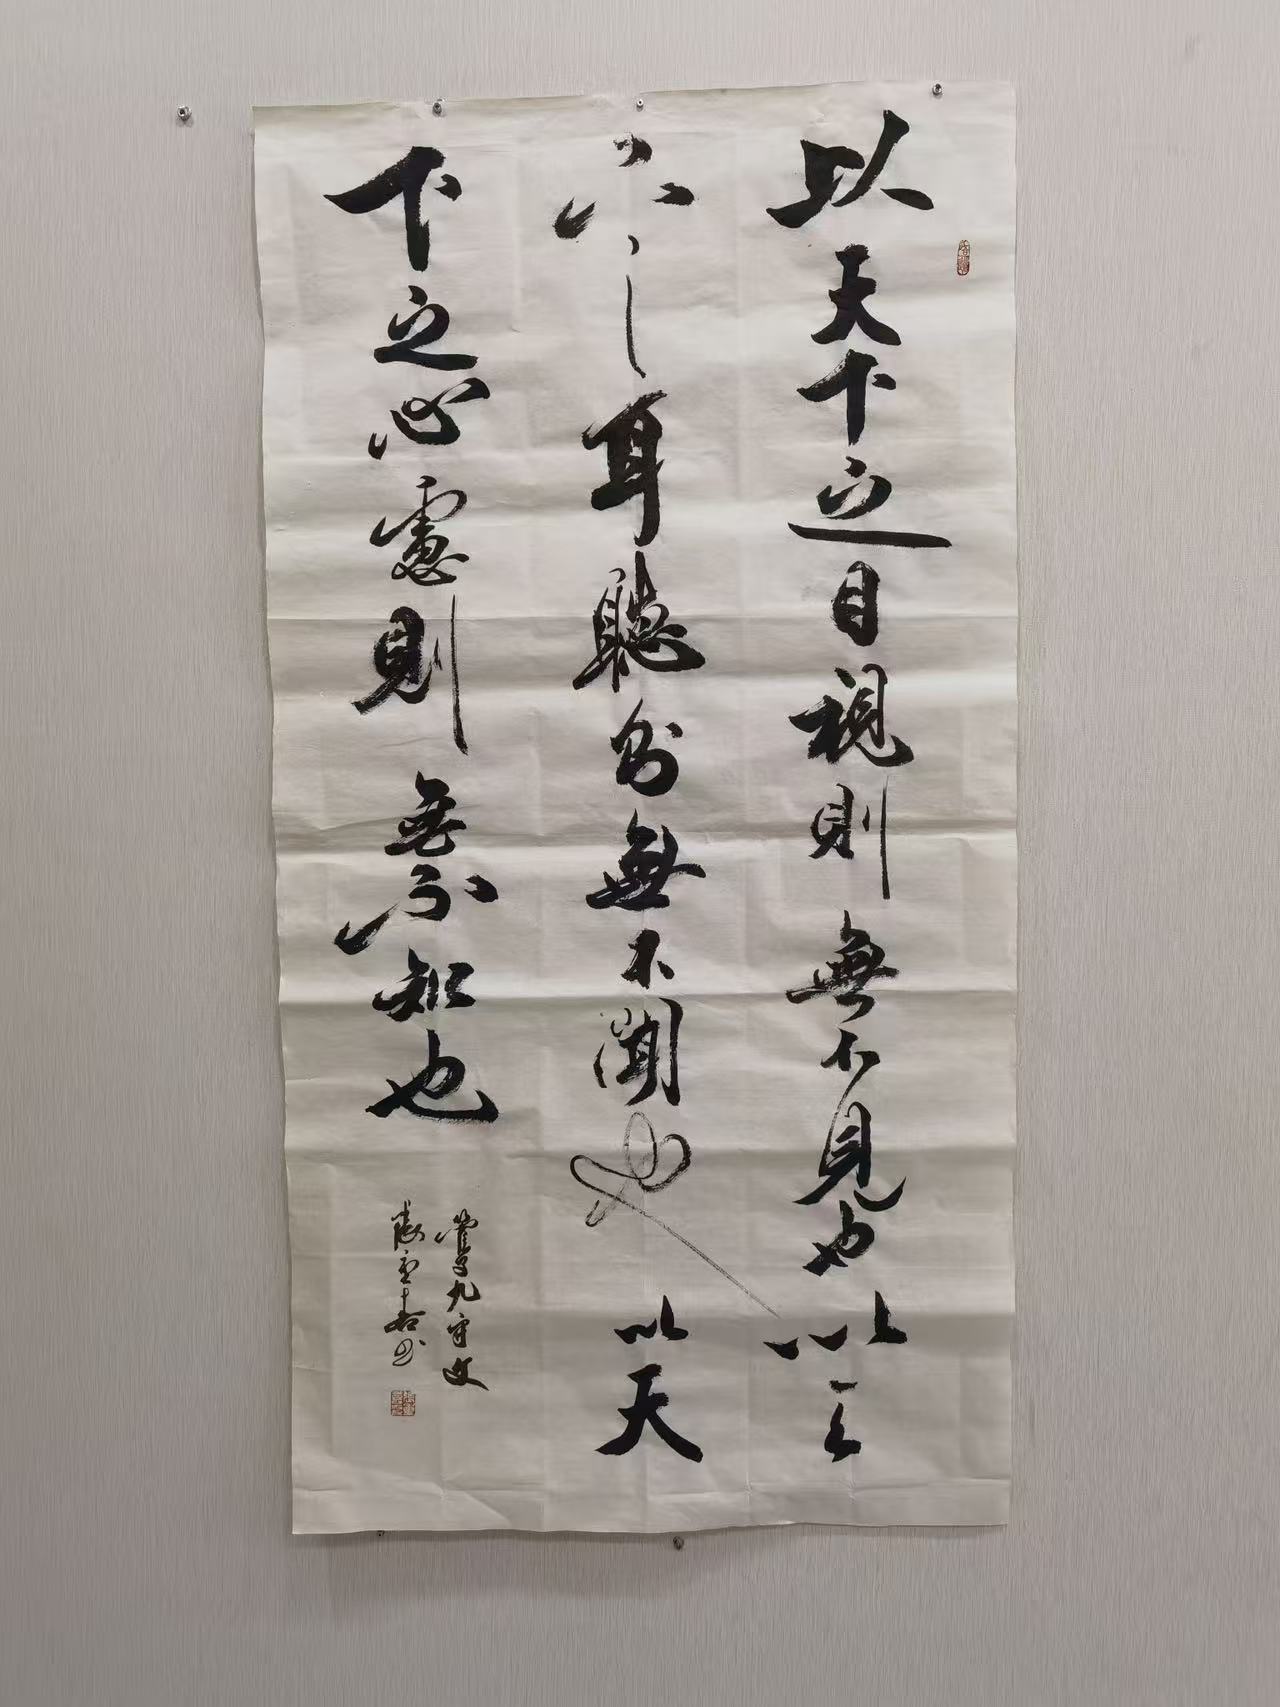 以天下之目視則無不見也以天
下之耳聽則無不聞也以天
下之心慮則無不知也
管子九守文